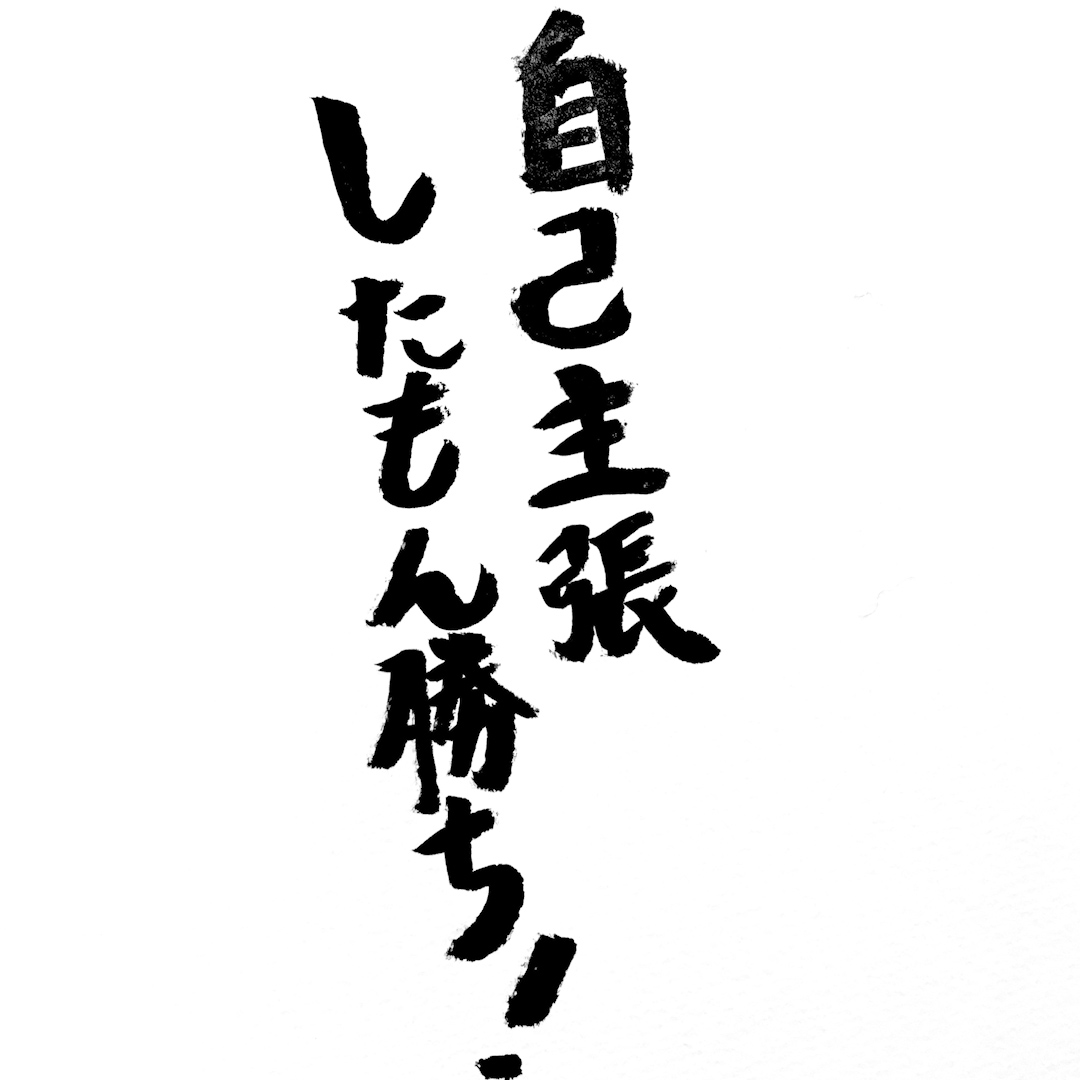 自己主張
したもん勝ち!